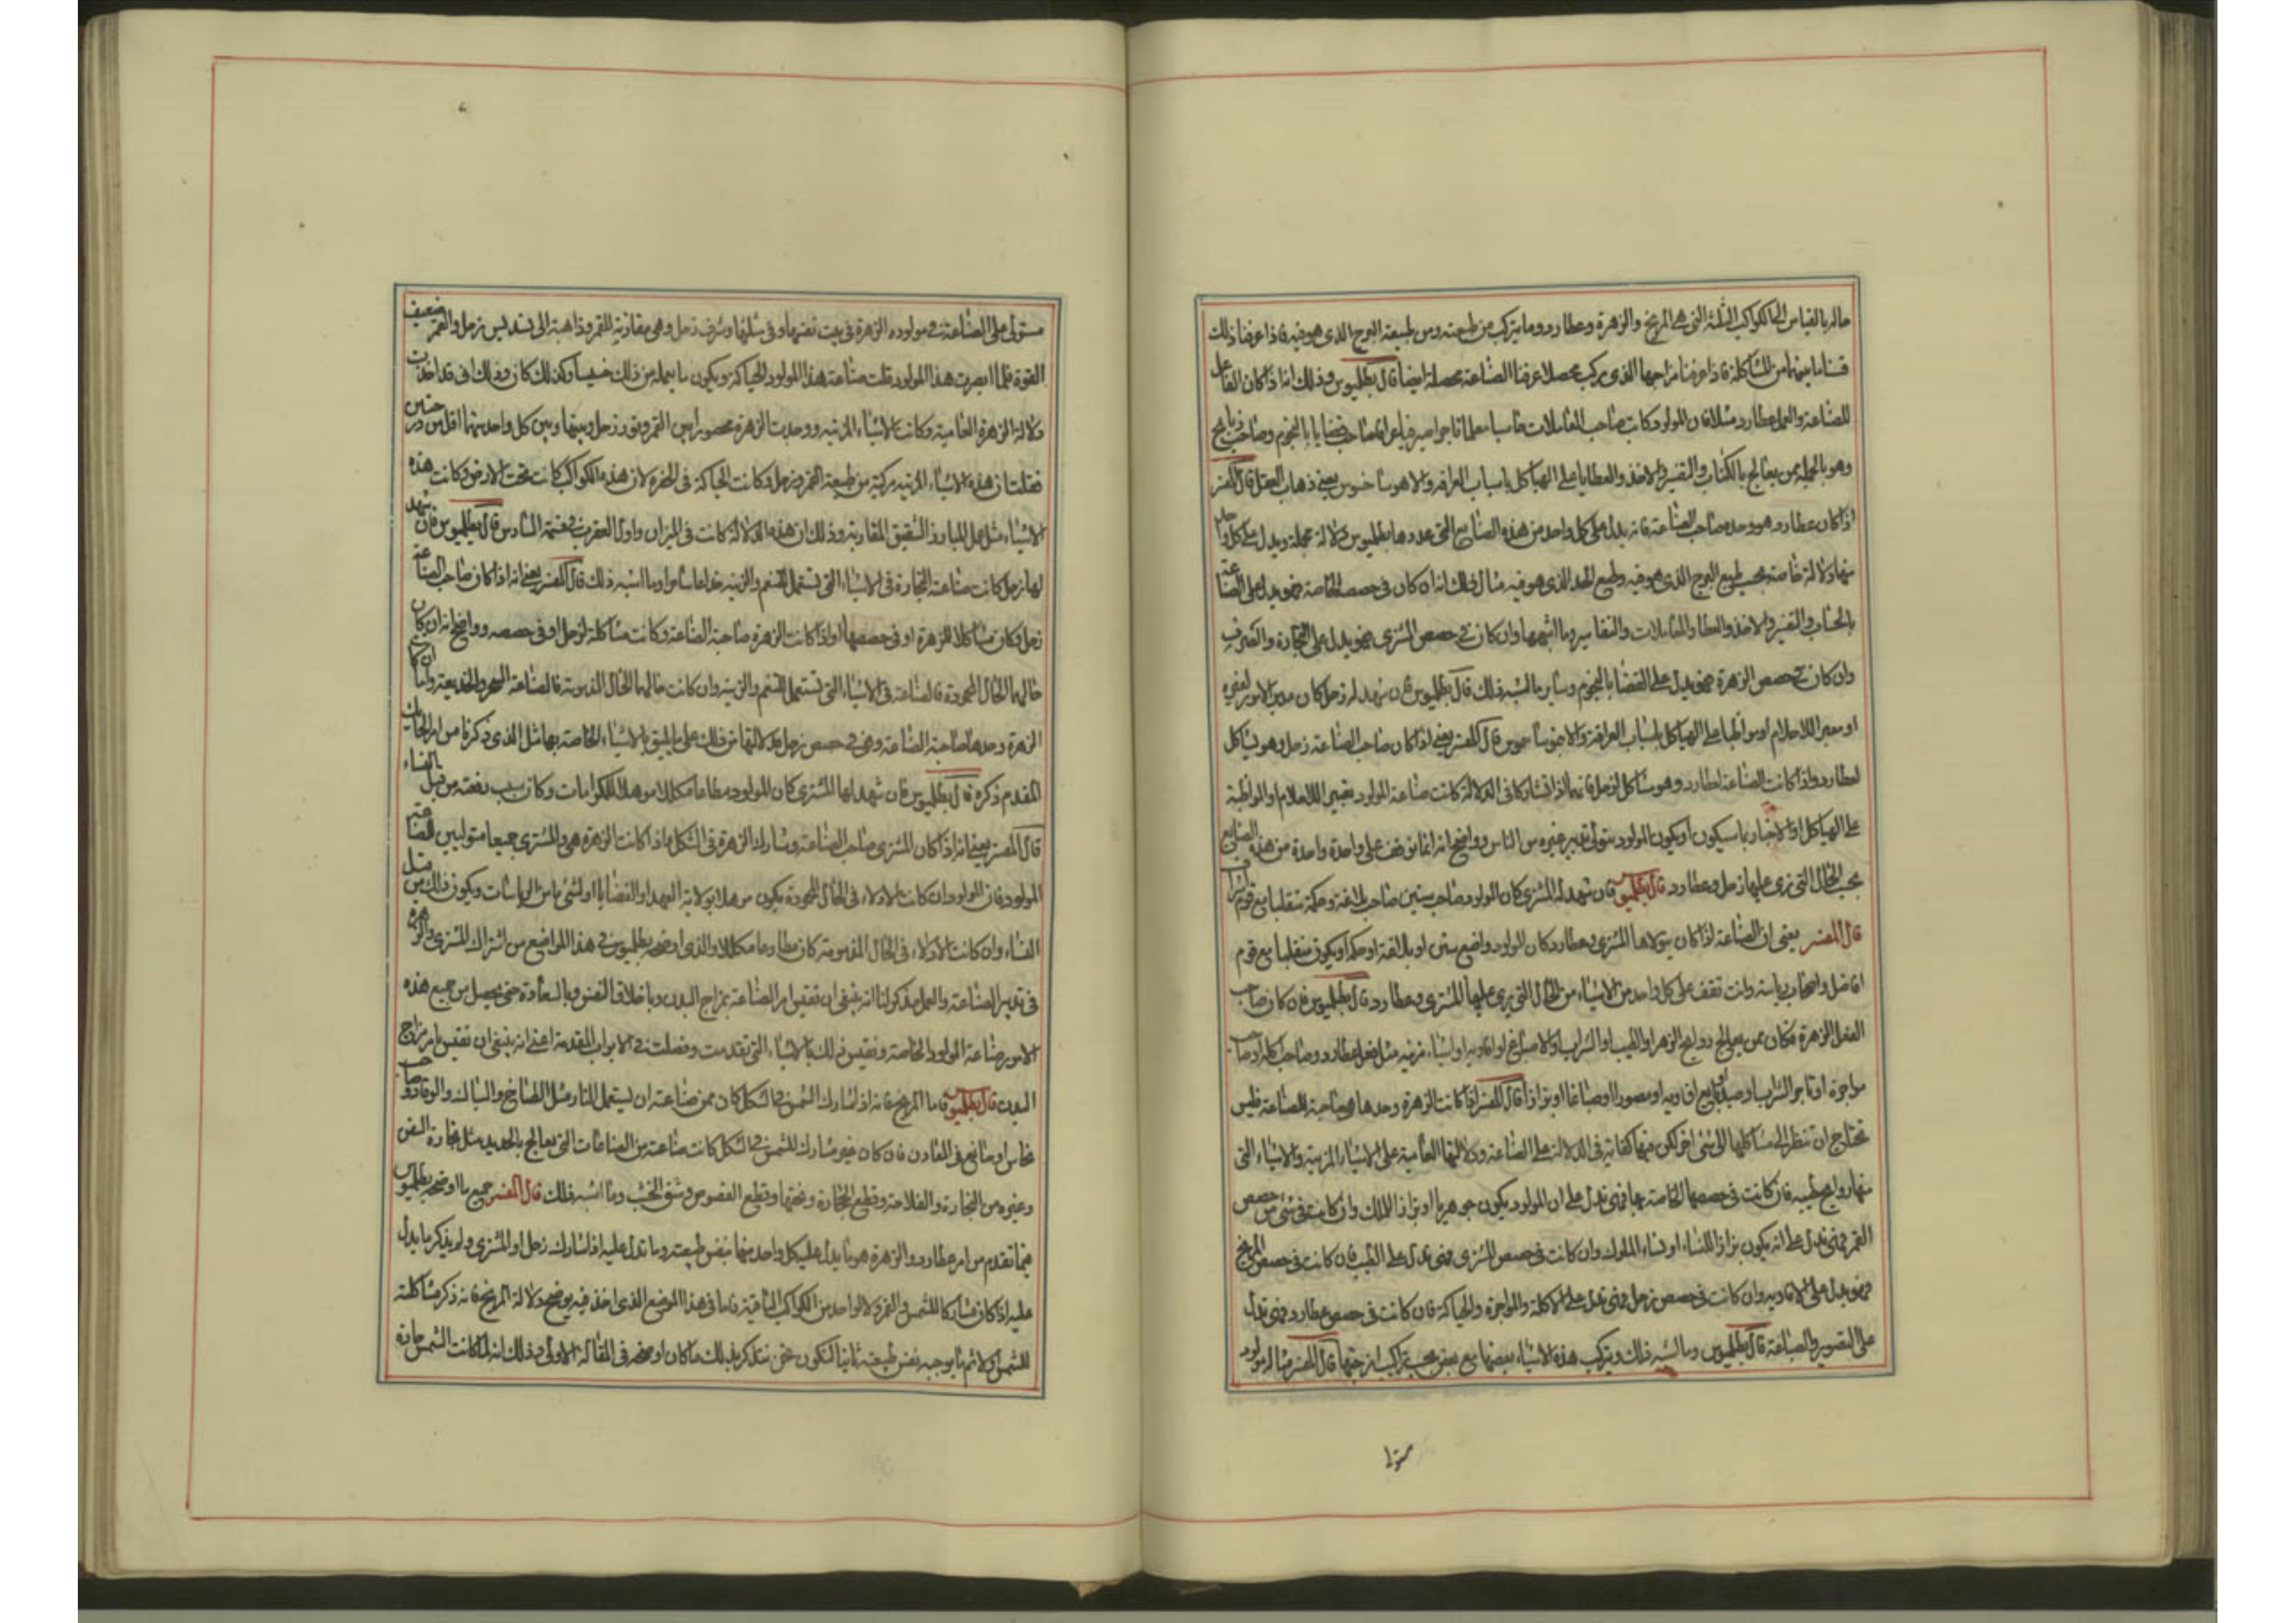 حاله بالقياس الى الكواكب الثلثة التى هى المريخ والزهرة وعطارد وما يتركب من طبيعته ومن طبيعة البرج الذى هو فيه فاذا عرفنا ذلك
المشاكلة فاذا عرفنا مزاجها الذى يركب محصلا عرفنا الصناعة محصلة ايضا قال بطلميوس وذلك انه اذا كان الفاعل
للصناعة والعمل عطارد مثلا فان المولود كاتب صاحب المعاملات حاسبا معلما تاجرا صيرفيا عرافا صاحب قضايا بالنجوم وصاحب ذبايح
وهو بالجملة ممن يعالج بالكتاب والتفسير والاخذ والعطايا على الهياكل باسباب العرافة يعنى ذهاب العقل قال المفسر
اذا كان عطارد هو وحده صاحب الصناعة فانه يدل على كل واحد من هذه الصنايع التى عددها بطلميوس دلالة مجملة ويدل على كل واحد
منها دلالة خاصة بحسب طبع البرج الذى هو فيه وطبع الحد الذى هو فيه مثال ذلك انه ان كان فى حصصه الخاصة فهو يدل على الصناعة
بالحساب والتفسير والاخذ والعطا والمعاملات والتفاسير وما اشبهها وان كان فى حصص المشترى فهو يدل على التجارة والصرف
وان كان فى حصص الزهرة فهو يدل على القضايا بالنجوم وساير ما اشبه ذلك قال بطلميوس فان شهد له زحل كان مدبرا لامور لغيره
او معبرا للاحلام او مواظبا على الهياكل باسباب العرافة قال المفسر يعنى اذا كان صاحب الصناعة زحل وهو يشاكل
لعطارد واذا كانت الصناعة لعطارد وهو مشاكل لزحل فانهما اذا تشاركا فى الدلالة كانت صناعة المولود تعبير الاحلام او المواظبة
على الهياكل او الاخبار بما سيكون او يكون المولود يتولى تدبير غيره من الناس وواضح انه انما نوقف على واحدة واحدة من هذه الصنايع
بحسب الحال التى نرى عليها زحل وعطارد قال بطلميوس فان شهد له المشترى كان المولود صاحب سنن صاحب بلاغة وحكمة متقلبا مع قوم اشراف
قال المفسر يعنى ان الصناعة اذا كان يتولاها المشترى وعطارد كان المولود واضع سنن او بلاغة او حكمة او يكون متقلبا مع قوم
افاضل واصحاب رياسة وانت تقف على كل واحد من الاشياء من الحال التى يرى عليها المشترى وعطارد قال بطلميوس فان كان صاحب
الفعل الزهرة فكان ممن يعالج روايح الزهر او الطيب او الشراب او الاصباغ او الادوية او اشياء مزينة مثل فعل عطارد وصاحب
مواجرة او تاجر الشراب او صيدلانى يبيع ادوية او مصورا او صباغا او بزازا قال المفسر اذا كانت الزهرة وحدها هى صاحبة الصناعة فليس
نحتاج ان ننظر الى مشاكلها الى شئ اخر لكن فيها كفاية فى الدلالة على الصناعة ودلالتها العامية على الاشياء المزينة والاشياء التى
منها روايح طيبة فان كانت فى حصصها الخاصة بها فهى تدل على ان المولود يكون جوهريا او بزازا للملك وان كانت فى شئ من حصص
القمر فهى تدل على انه يكون بزازا للنساء او نساء الملوك وان كانت فى حصص المشترى فهى تدل على الطيب فان كانت فى حصص المريخ
فهو يدل على الادوية وان كانت فى حصص زحل فهى تدل على والمواجرة والحياكة فان كانت فى حصص عطارد فهى تدل
على التصوير والصباغة قال بطلميوس وما اشبه ذلك ويتركب هذه الاشياء بعضها مع بعض بحسب تراكيب امزجتها قال المفسر مثاله مولود
مستول
مستولى على الصناعة فى مولوده الزهرة فى بيت نفسها وفى مثلثتها وشرف زحل وهى مقارنة للقمر وذاهبة الى تسديس زحل والقمر ضعيف
القوة فلما ابصرت هذا المولود قلت صناعة هذا المولود الحياكة ويكون ما يعمله من ذلك خسيسا وكذلك كان وذلك انى قد اخذت
دلالة الزهرة العامية وكانت الاشياء المزينة ووجدت الزهرة محصورا بين القمر ونور زحل وبينها وبين كل واحد منهما اقل من درجتين
فقلت ان هذه الاشياء المزينة مركبة من طبيعة القمر وزحل وكانت الحياكة فى الحفرة لان هذه الكواكب كانت تحت الارض وكانت هذه
الاشياء مثل عمل اللباد والشقيق المقاربة وذلك ان هذه الدلالة كانت فى الميزان واول العقرب فى قسمة السادس قال بطلميوس فان شهد
لها زحل كانت صناعته التجارة فى الاشياء التى تستعمل للنعم والزينة وما اشبه ذلك قال المفسر يعنى انه اذا كان صاحب الصناعة
زحل وكان مشاكلا للزهرة او فى حصصها او اذا كانت الزهرة صاحبة الصناعة وكانت مشاكلة لزحل او فى حصصه وواضح انه ان كان
حالهما الحال المحمودة فالصناعة فى الاشياء التى تستعمل للنعم والزينة وان كانت حالهما الحال المذمومة فالصناعة السحر والخديعة واما ان كانت
الزهرة وحدها صاحبة الصناعة وهى فى حصص زحل فدلالتها من ذلك على ما يليق بالاشياء الخاصة بها مثل الذى ذكرنا من امر الحايك
المقدم ذكره قال بطلميوس فان شهد لها المشترى كان المولود مطاعا مكللا موهلا للكرامات وكان سبب رفعته من قبل النساء
قال المفسر يعنى انه اذا كان المشترى صاحب الصناعة وشارك الزهرة فى الشكل واذا كانت الزهرة هى والمشترى جميعا متوليين لصناعة
المولود فان المولود ان كانت الادلاء فى الحال المحمودة يكون موهلا بولاية العهد او القضايا او لشئ ما من الرياسات ويكون ذلك من قبل
النساء وان كانت الادلاء فى الحال المذمومة كان مطاوعا مكللا والذى اوضحه بطلميوس فى هذا المواضع من اشتراك المشترى والزهرة
فى تدبير الصناعة والعمل يذكر لنا انه ينبغى ان نقيس امر الصناعة بمزاج البدن وباخلاق النفس وبالسعادة حتى يحصل من جميع هذه
الامور صناعة المولود الخاصة ونقيس ذلك بالاشياء التى تقدمت وفصلت فى الابواب المقدمة اعنى انه ينبغى ان نقيس بامر مزاج
البدن قال بطلميوس فاما المريخ فانه اذا شارك الشمس فى الشكل كان ممن صناعته ان يستعمل النار مثل الطباخ والسباك والوقاد وصاحب
نحاس او صانع فى المعادن فان كان غير مشارك للشمس فى الشكل كانت صناعته من الصناعات التى تعالج بالحديد مثل نجارة السفن
وغيره من النجارة والفلاحة وقطع الحجارة ونحتها وقطع الفصوص وشق الخشب وما اشبه ذلك قال المفسر جميع ما اوضحه بطلميوس
فيما تقدم من امر عطارد والزهرة هو ما يدل عليه كل واحد منهما بنفس طبيعته وما تدل عليه اذا شارك زحل او المشترى ولم يذكر ما يدل
عليه اذا كان مشاركا للشمس والقمر ولا لواحد من الكواكب الباقية فاما فى هذا الموضع الذى اخذ فيه يوضح دلالة المريخ فانه ذكر مشاكلته
للشمس اولا ثم ما يوجبه نفس طبيعته ثانيا لنكون نحن نتذكر بذلك ما كان اوضحه فى المقالة الاولى وذلك انه لما كانت الشمس حارة